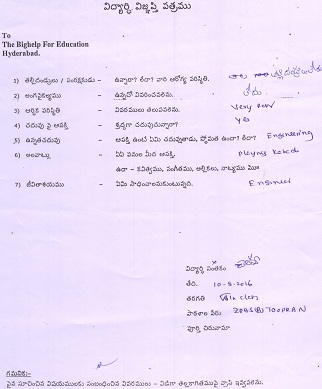 విద్యార్ధి విజ్ఞప్తి పత్రము
To
The Bighelp For Education
Hyderabad.
1) తల్లిదండ్రులు / సంరక్షకుడు - ఉన్నారా? లేదా? వారి ఆరోగ్య పరిస్థితి.
2) అంగవైకల్యము - ఉన్నదో వివరించవలెను. లేదు
3) ఆర్థిక పరిస్థితి - వివరములు తెలుపవలెను. Very poor
4) చదువు పై ఆసక్తి - శ్రద్ధగా చదువుచున్నారా? yes
5) ఉన్నతచదువు - ఆసక్తి ఉంటే ఏమి చదువుతాడు, స్తోమత ఉందా? లేదా? Engineering
6) అలవాట్లు - ఏఏ పనుల మీద ఆసక్తి. playing
ఉదా - కవిత్వము, సంగీతము, అల్లికలు, నాట్యము మొ॥
7) జీవితాశయము - ఏమి సాధించాలనుకుంటున్నది. Engineer
విద్యార్థి సంతకం
తేది. 10-5-2016
తరగతి class
పాఠశాల పేరు TOOPRAN
పూర్తి చిరునామా
గమనిక:-
పైన సూచించిన విషయములకు సంబంధించిన వివరములు - విడిగా తెల్లకాగితముపై వ్రాసి ఇవ్వవలెను.